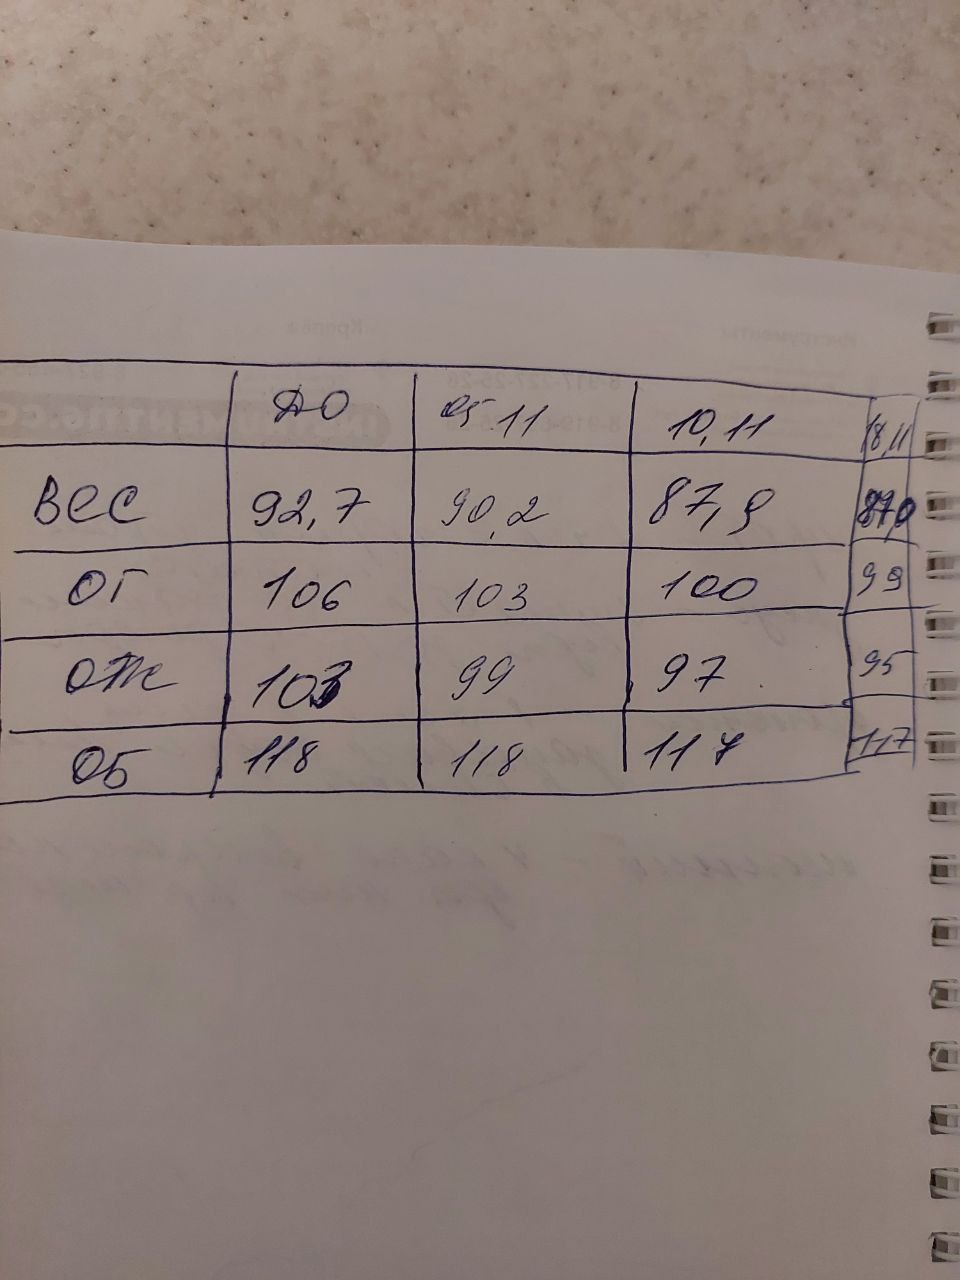 ДО 05.11 10,11 18,11
ВЕС 92,7 90,2 87,9 87,0
ОГ 106 103 100 99
ОЖ 103 99 97 95
ОБ 118 118 117 117